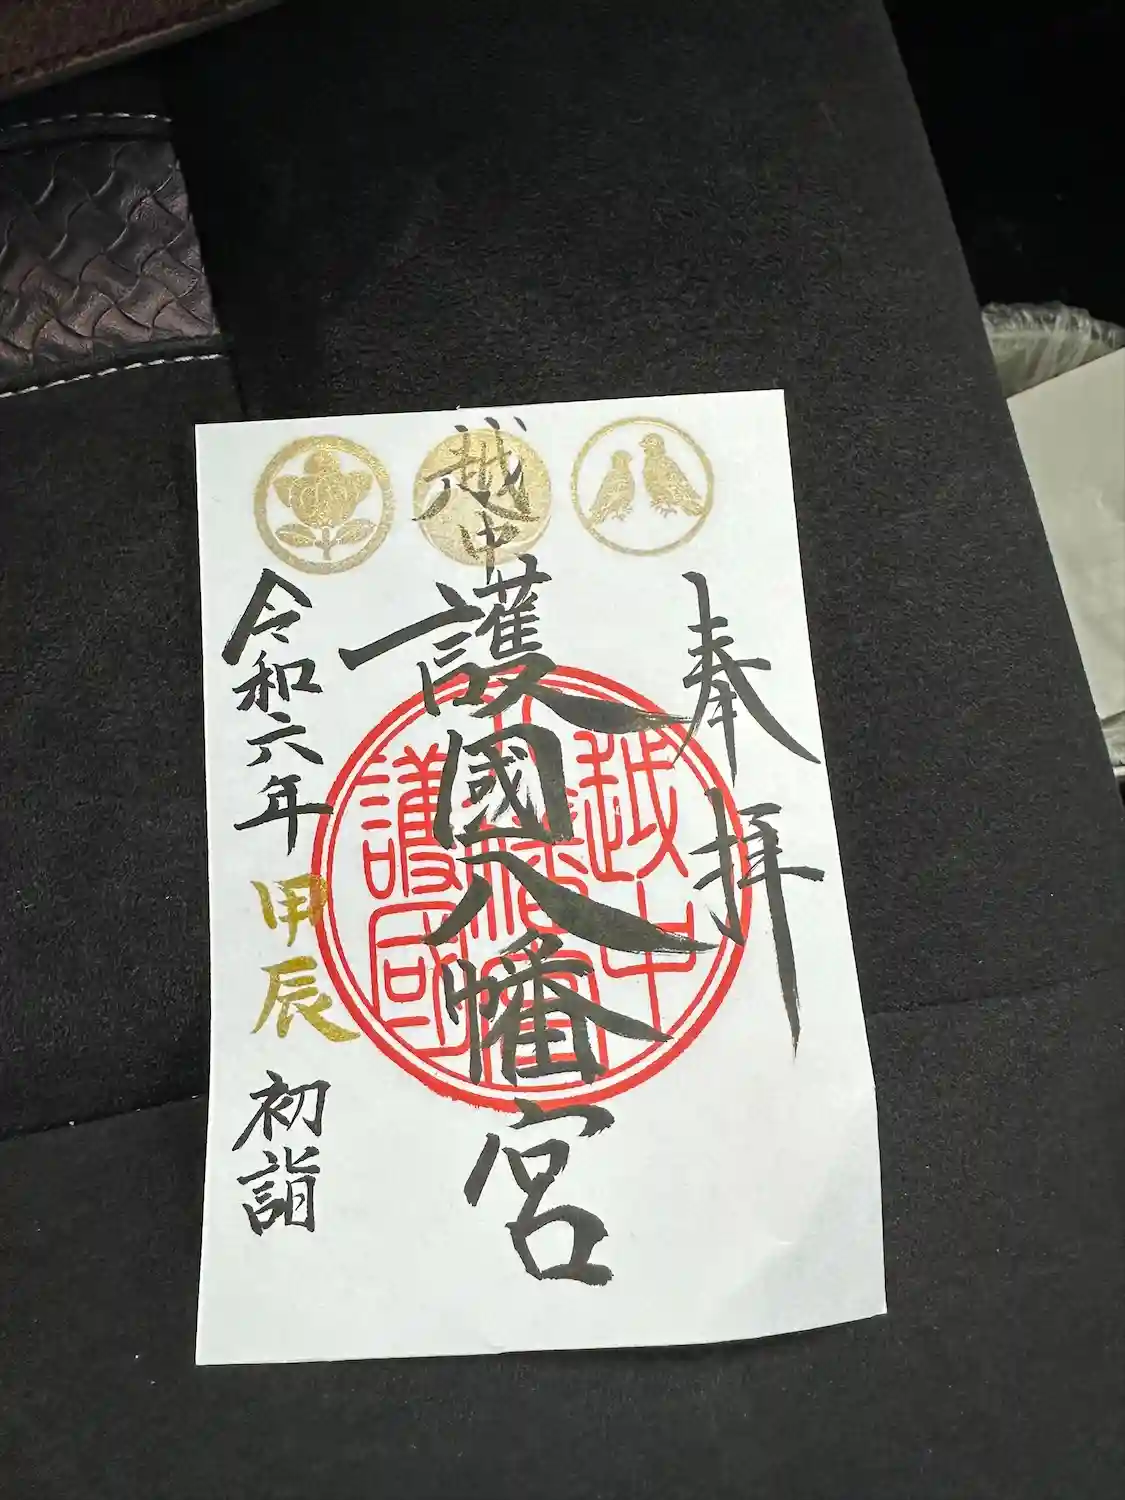 奉拝
越中
護國八幡宮
越中
護国
令和六年 甲辰 初詣